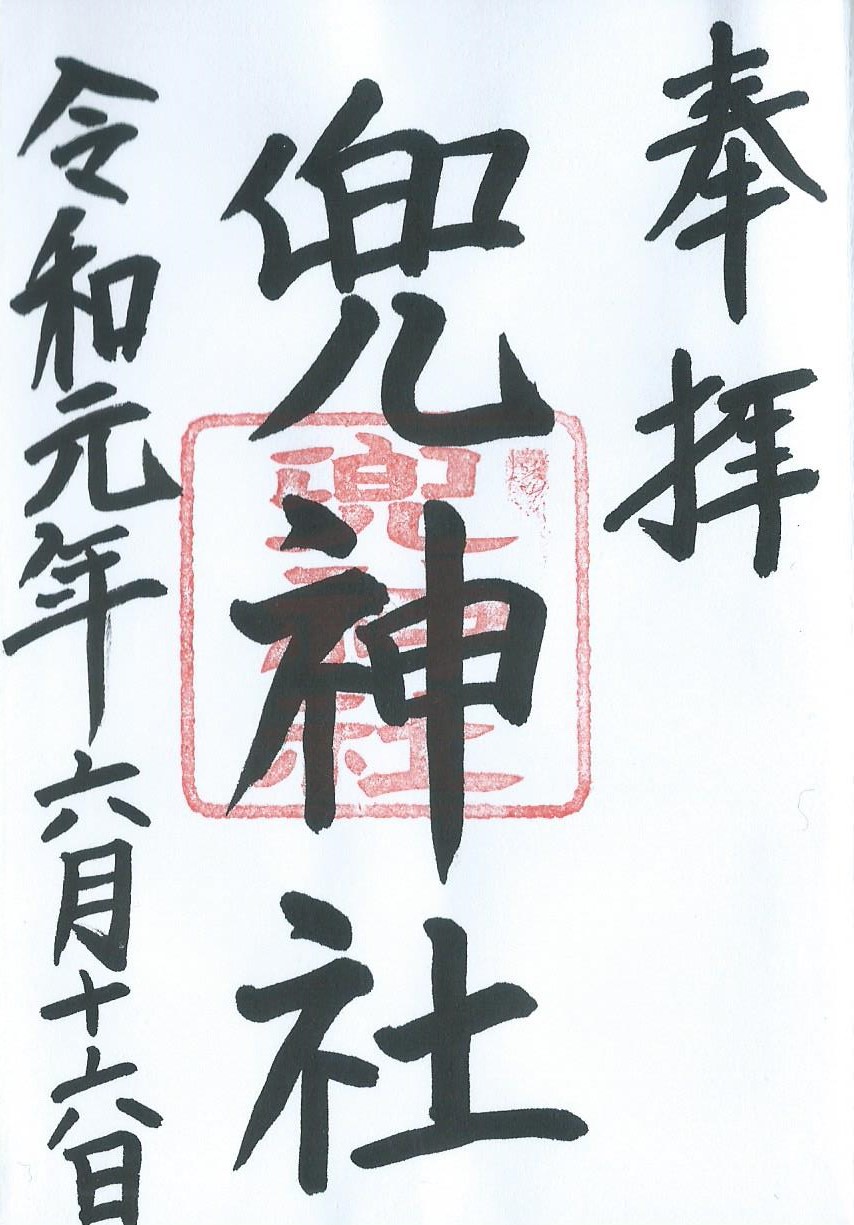 奉拝
兜神社
兜神社
令和元年六月十六日